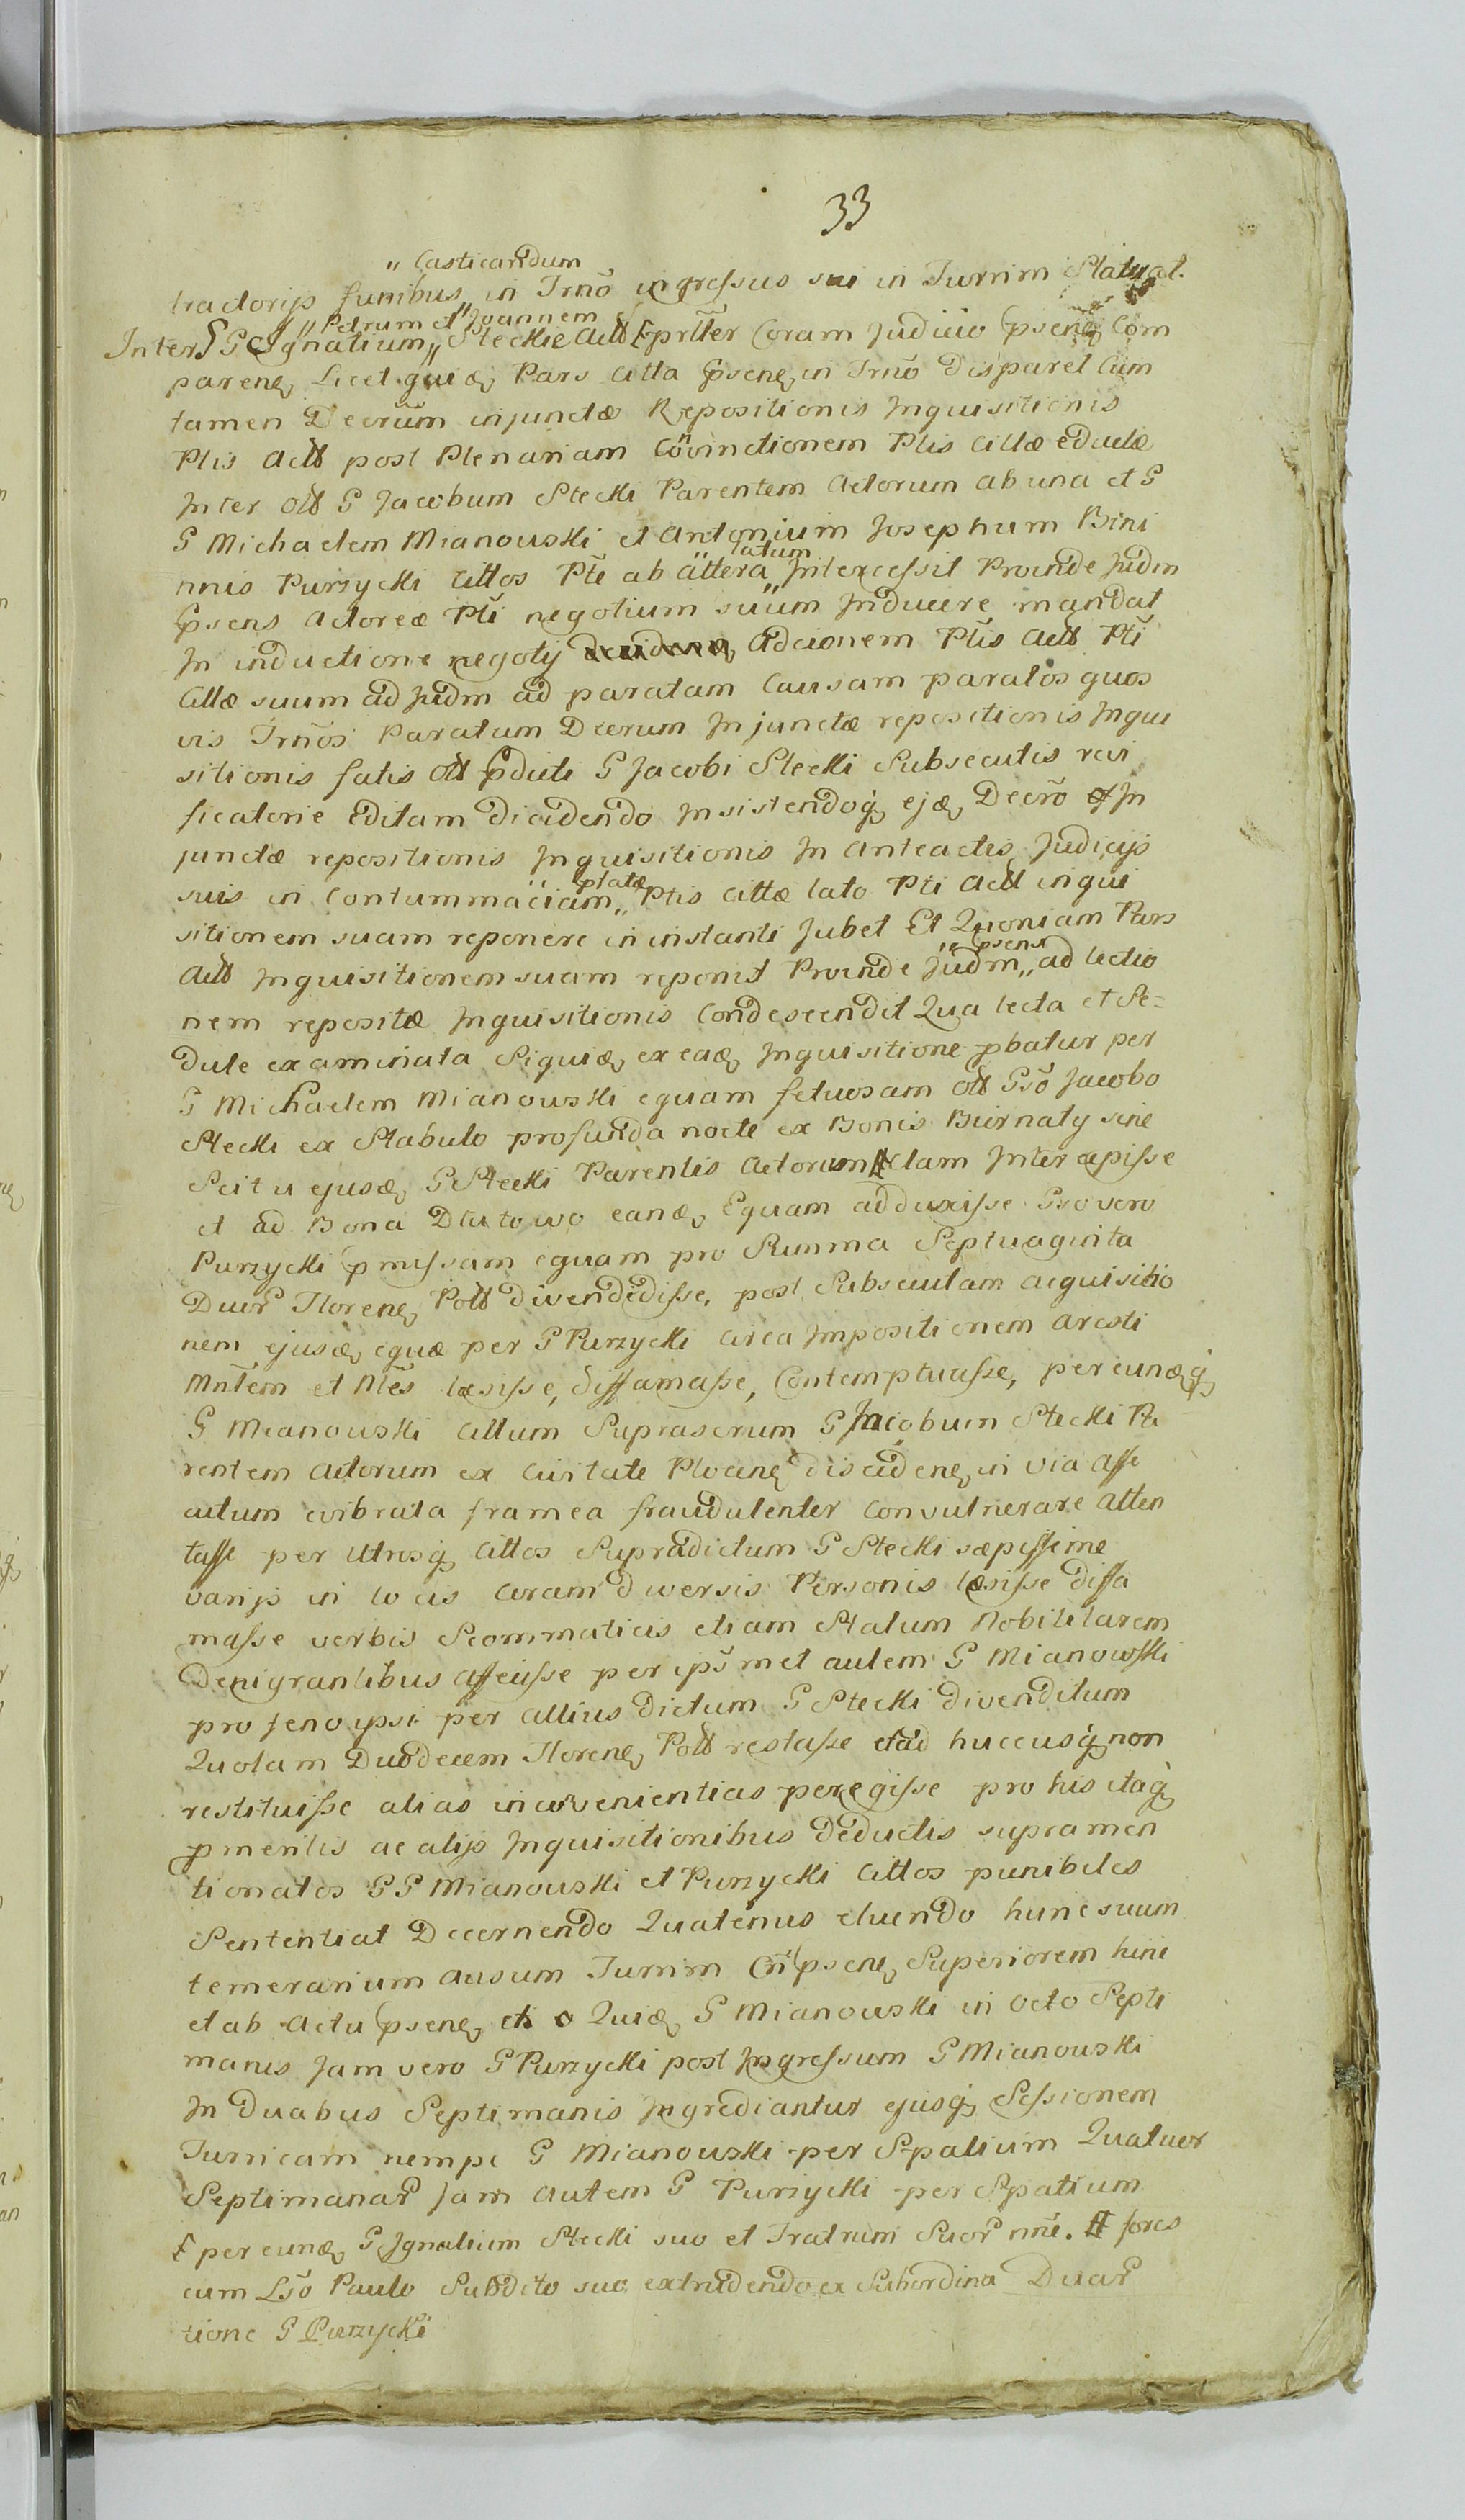 33
„ Casticandum
tractorijs funibus „ in Trnõ ingressus sui in Turrim Statuat.
„ Petrum et Joannem
Inter GG Ignatium „ Steckie Actt prtter Coram Judicio psenq Com
parenq Licet quidq Pars Citta psenq in Trnõ disparet Cum
tamen Decrũm injunctæ Repositionis Inquisitionis
Ptis Actt post Plenariam Cõvinctionem Ptis Cittæ eductæ
Inter Ott G Jacobum Stecki Parentem Actorum ab una et G
G Michaelem Mianouski et Antonium Josephum Bini
latum
nnis Purzycki Cittos Ptẽ ab altera „ Intercessit Proinde Judm
psens Actoreæ Pti negotium suum Inducere mandat
In inductione negotij Adcionem Ptis Actt Pti
Cittæ suum ad Judm ad paratam Causam paratos quos
vis Trnõs Paratum Decrum Injunctæ repositionis Inqui
sitionis fatis Ott pducti G Jacobi Stecki Subsecutis revi
ficatorie Editam dicidendo Insistendoq ejdq Decrõ In
junctæ repositionis Inquisitionis In Anteactis Judicijs
platæ
suis in Contummaciam „ Ptis Cittæ lato Pti Actt inqui
sitionem suam reponere in instanti Jubet Et Quoniam Pars
psens
Actt Inquisitionem suam reponit Proinde Judm „ ad lectio
nem repositæ Inquisitionis Condescendit Qua lecta et Se=
dule examinata Siquidq ex eadq Inquisitione pbatur per
G Michaelem Mianouski equam fetuosam Ott Gsõ Jacobo
Stecki ex Stabulo profunda nocte ex Bonis Biernaty sine
Scitu ejusdq G Stecki Parentis Actorum # Clam Intercepisse
et ad Bona Dlutowo eandq Equam adduxisse Gso vero
Purzycki pmissam equam pro Summa Septuaginta
Duor Florenq Potl divendidisse, post Subsecutam acquisitio
nem ejusdq equæ per G Purzycki circa Impositionem Aresti
Mntem et Mẽs læsisse, diffamasse, Contemptuasse, per eundq q
G Mianouski Cittum Suprascrum G Jacobum Stecki Pa
rentem Actorum ex Civitate Plocenq discedenq in via Asse
cutum evibrata framea fraudulenter convulnerare atten
tasse per Utrosq Cittos Supradictum G Stecki sæpissime
varijs in locis Coram diversis Personis læsisse diffa
masse verbis Scommaticis etiam Statum Nobilitarem
Denigrantibus Affecisse per ipsmet autem G Mianowski
pro feno ipsi per Allius dictum G Stecki divenditum
Quotam Duodecem Florenq Potl restasse et ad huccusq non
restituisse alias incõvenientias peregisse pro his itaq
pmentis ac alijs Inquisitionibus deductis supramen
tionatos GG Mianouski et Purzycki Cittos punibiles
Sententiat Decernendo Quatenus eluendo hunc suum
temerarium Ausum Turrim Cri psenq Superiorem hinc
et ab Actu psenq Quidq G Mianouski in Octo Septi
manis Jam vero G Purzycki post Ingressum G Mianouski
In duabus Septimanis Ingrediantur ejusq Sessionem
Turricam nempe G Mianouski per Spatium Quatuor
Septimanar Jam autem G Purzycki per Spatium
per eundq G Ignatium Stecki suo et Fratrum Suor nnẽ. # fores
cum Lsõ Paulo Subdito suo extrudendo ex Subordina Duar
tione G Purzycki